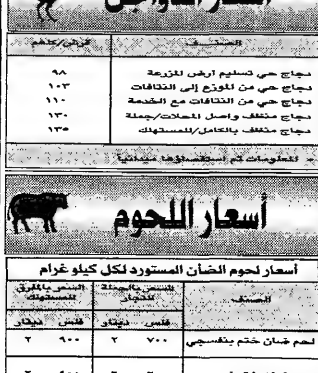 أسعار الدواجن
الصنف قرش/كلغم
دجاج حي تسليم ارض المزرعة ٩٨
دجاج حي من الموزع إلى النتافات ١٠٣
دجاج حي من النتافات مع الخدمة ١١٠
دجاج منظف واصل المحلات/جملة ١٣٠
دجاج منظف بالكامل/للمستهلك ١٣٥
المعلومات تم استقصاؤها ميدانيا
أسعار اللحوم
أسعار لحوم الضأن المستورد لكل كيلو غرام
الصنف السعر بالجملة للتجار السعر بالمفرق للمستهلك
فلس دينار فلس دينار
لحم ضان ختم بنفسجي ٧٠٠ ٢ ٩٠٠ ٢